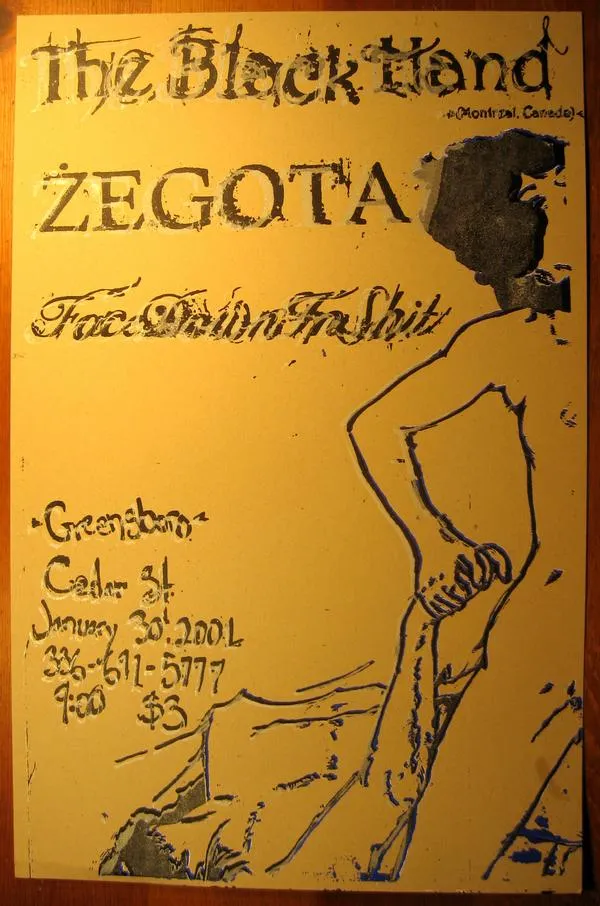 The Black Hand
(Montreal, Canada)
ŻEGOTA
Face Down In Shit
-Greensboro-
Cedar St
January 30, 2001
336-691-5777
9:00 $3